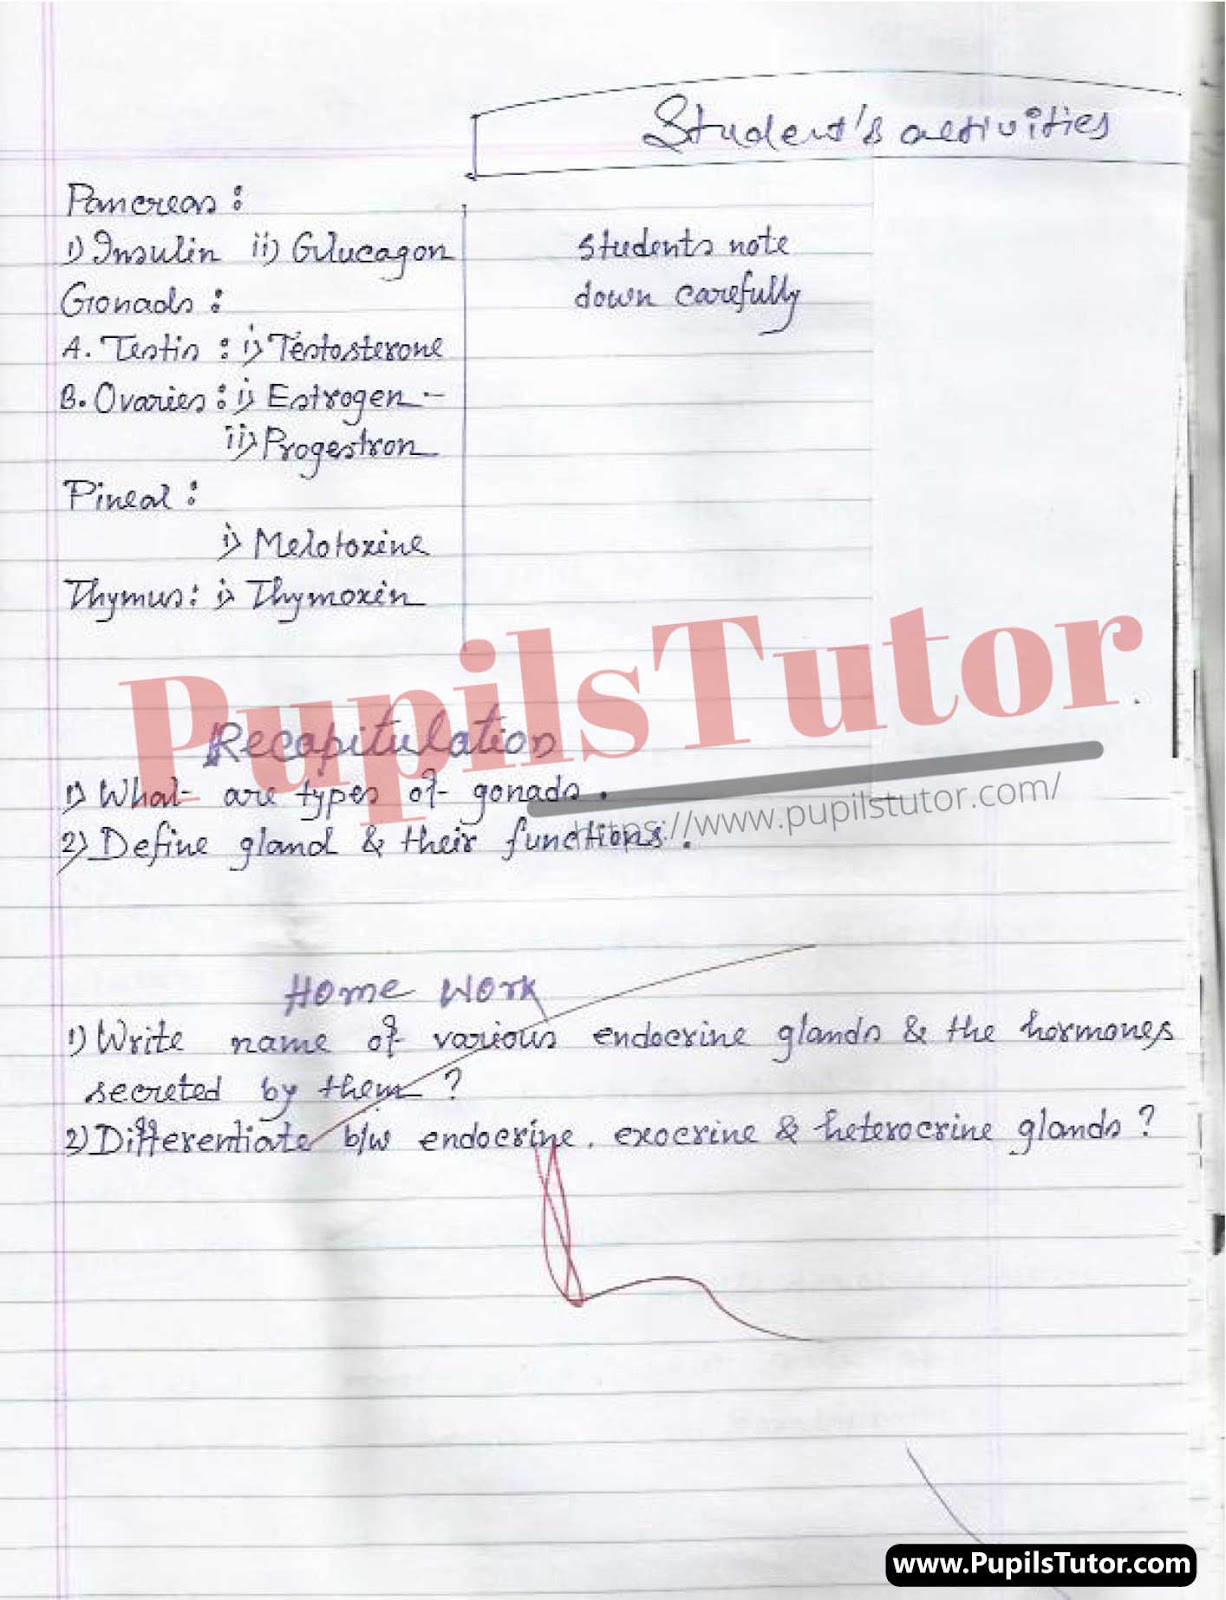 Student's activities
Pancreas :
i) Insulin ii) Glucagon
Gonads :
A. Testis : i) Testosterone
B. Ovaries : i) Estrogen
ii) Progestron
Pineal :
i) Melotoxine
Thymus : i) Thymoxin
Students note
down carefully
PupilsTutor
https://www.pupilstutor.com/
Recapitulation
1) What are types of gonads.
2) Define gland & their functions.
Home Work
1) Write name of various endocrine glands & the hormones
secreted by them ?
2) Differentiate b/w endocrine, exocrine & heterocrine glands ?
www.PupilsTutor.com